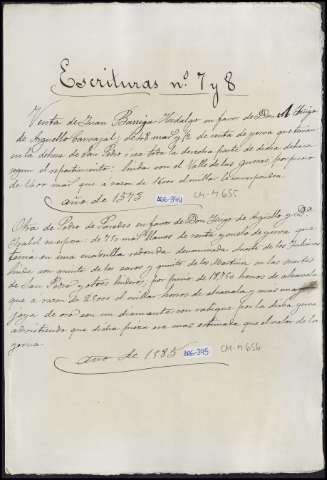 Escrituras nº 7 y 8
Venta de Juan Barriga Hidalgo en favor de Don Alº Yñigo
de Arguello Carvajal, de 48 mars y ½ de renta de yerva que tenia
en la dehesa de San Pedro é eso toca la derecha parte de dicha dehesa
segun el repartimiento; linda con el Valle de las guerras, por precio
de mars que a razon de el millar le correspondia
año de 1573 LEG-344 CM-M 655
Otra de Pedro de Paredes en favor de Don Diego de Arguello y Dª
Ysabel su esposa de 750 mars blancos de renta y suelo de yerva que
tenia en una cuadrilla redonda denominada
linda con quinto de los asnos y quinto de los Martin en los montes
de San Pedro y otros linderos, por precio de 18750 horros de alcavala
que a razon de 25000 el millar horros de alcavala, y mas una
joya de oro con un diamante con valiese por la dicha yerva
advirtiendo que dicha pieza no era estimada que el valor de la
yerva.
año de 1585 LEG-345 CM-M 656